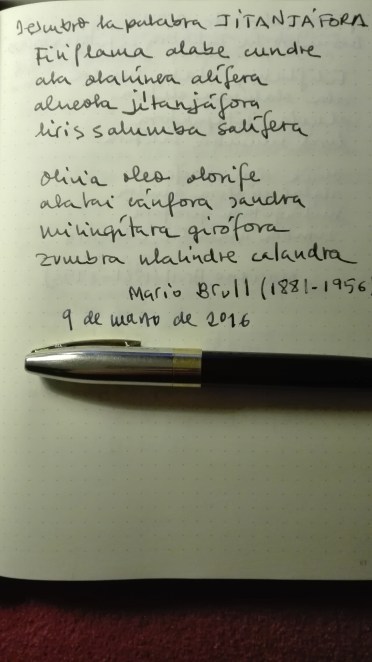 Descubro la palabra JITANJÁFORA
Filiflama alabe cundre
ala olalúnea alífera
alveola jitanjáfora
liris salumba salífera
olivia oleo olorife
alalai cánfora sandra
milingítara girófora
zumbra ulalindre calandra
Mario Brull (1881-1956)
9 de marzo de 2016